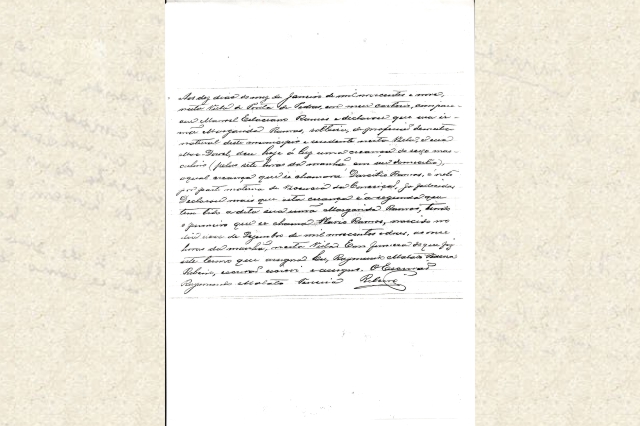 Aos dez dias do mez de Janeiro de mil novecentos e nove,
nesta Villa de Ponta de Pedras, em meu cartorio, compare-
ceu Manoel Estaciano Ramos e declarou que sua ir-
mã Margarida Ramos, solteira, de profissão domestica
natural deste municipio e residente nesta Villa, á rua
deu hoje á luz uma creança de sexo mas-
culino (pelas sete horas da manhã em seu domicilio),
a qual creança que se chamará Ramos, é neto
por parte materna de da Conceição, já fallecida,
Declarou mais que esta creança é a segunda que
tem tido a dita sua irmã Margarida Ramos, tendo
o primeiro que se chama Ramos, nascido no
dia nove de Dezembro de mil novecentos e dois, as
horas da manhã, nesta Villa. E em firmeza do que fiz
este termo que assigna. Eu, Raymundo Malato
Ribeiro, escrivão escrevi e assigno. O Escrivão
Raymundo Malato Ribeiro